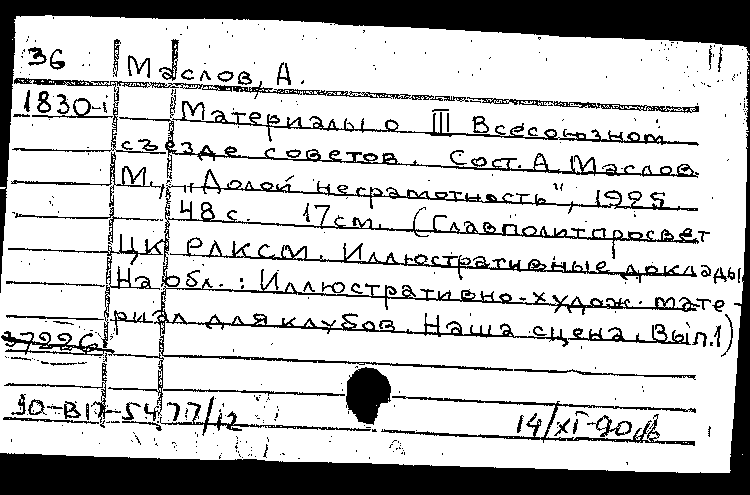 36 Маслов, А.
1830-1 Материалы о III Всесоюзном
съезде советов. Сост. А. Маслов
М., „Долой неграмотность", 1925.
48 с. 17 см. (Главполитпросвет
ЦК РЛКСМ. Иллюстративные доклады.
На обл.: Иллюстративно-худож. мате-
риал для клубов. Наша сцена. Вып.1)
37226
90-В17-5477/12
14/XI-90